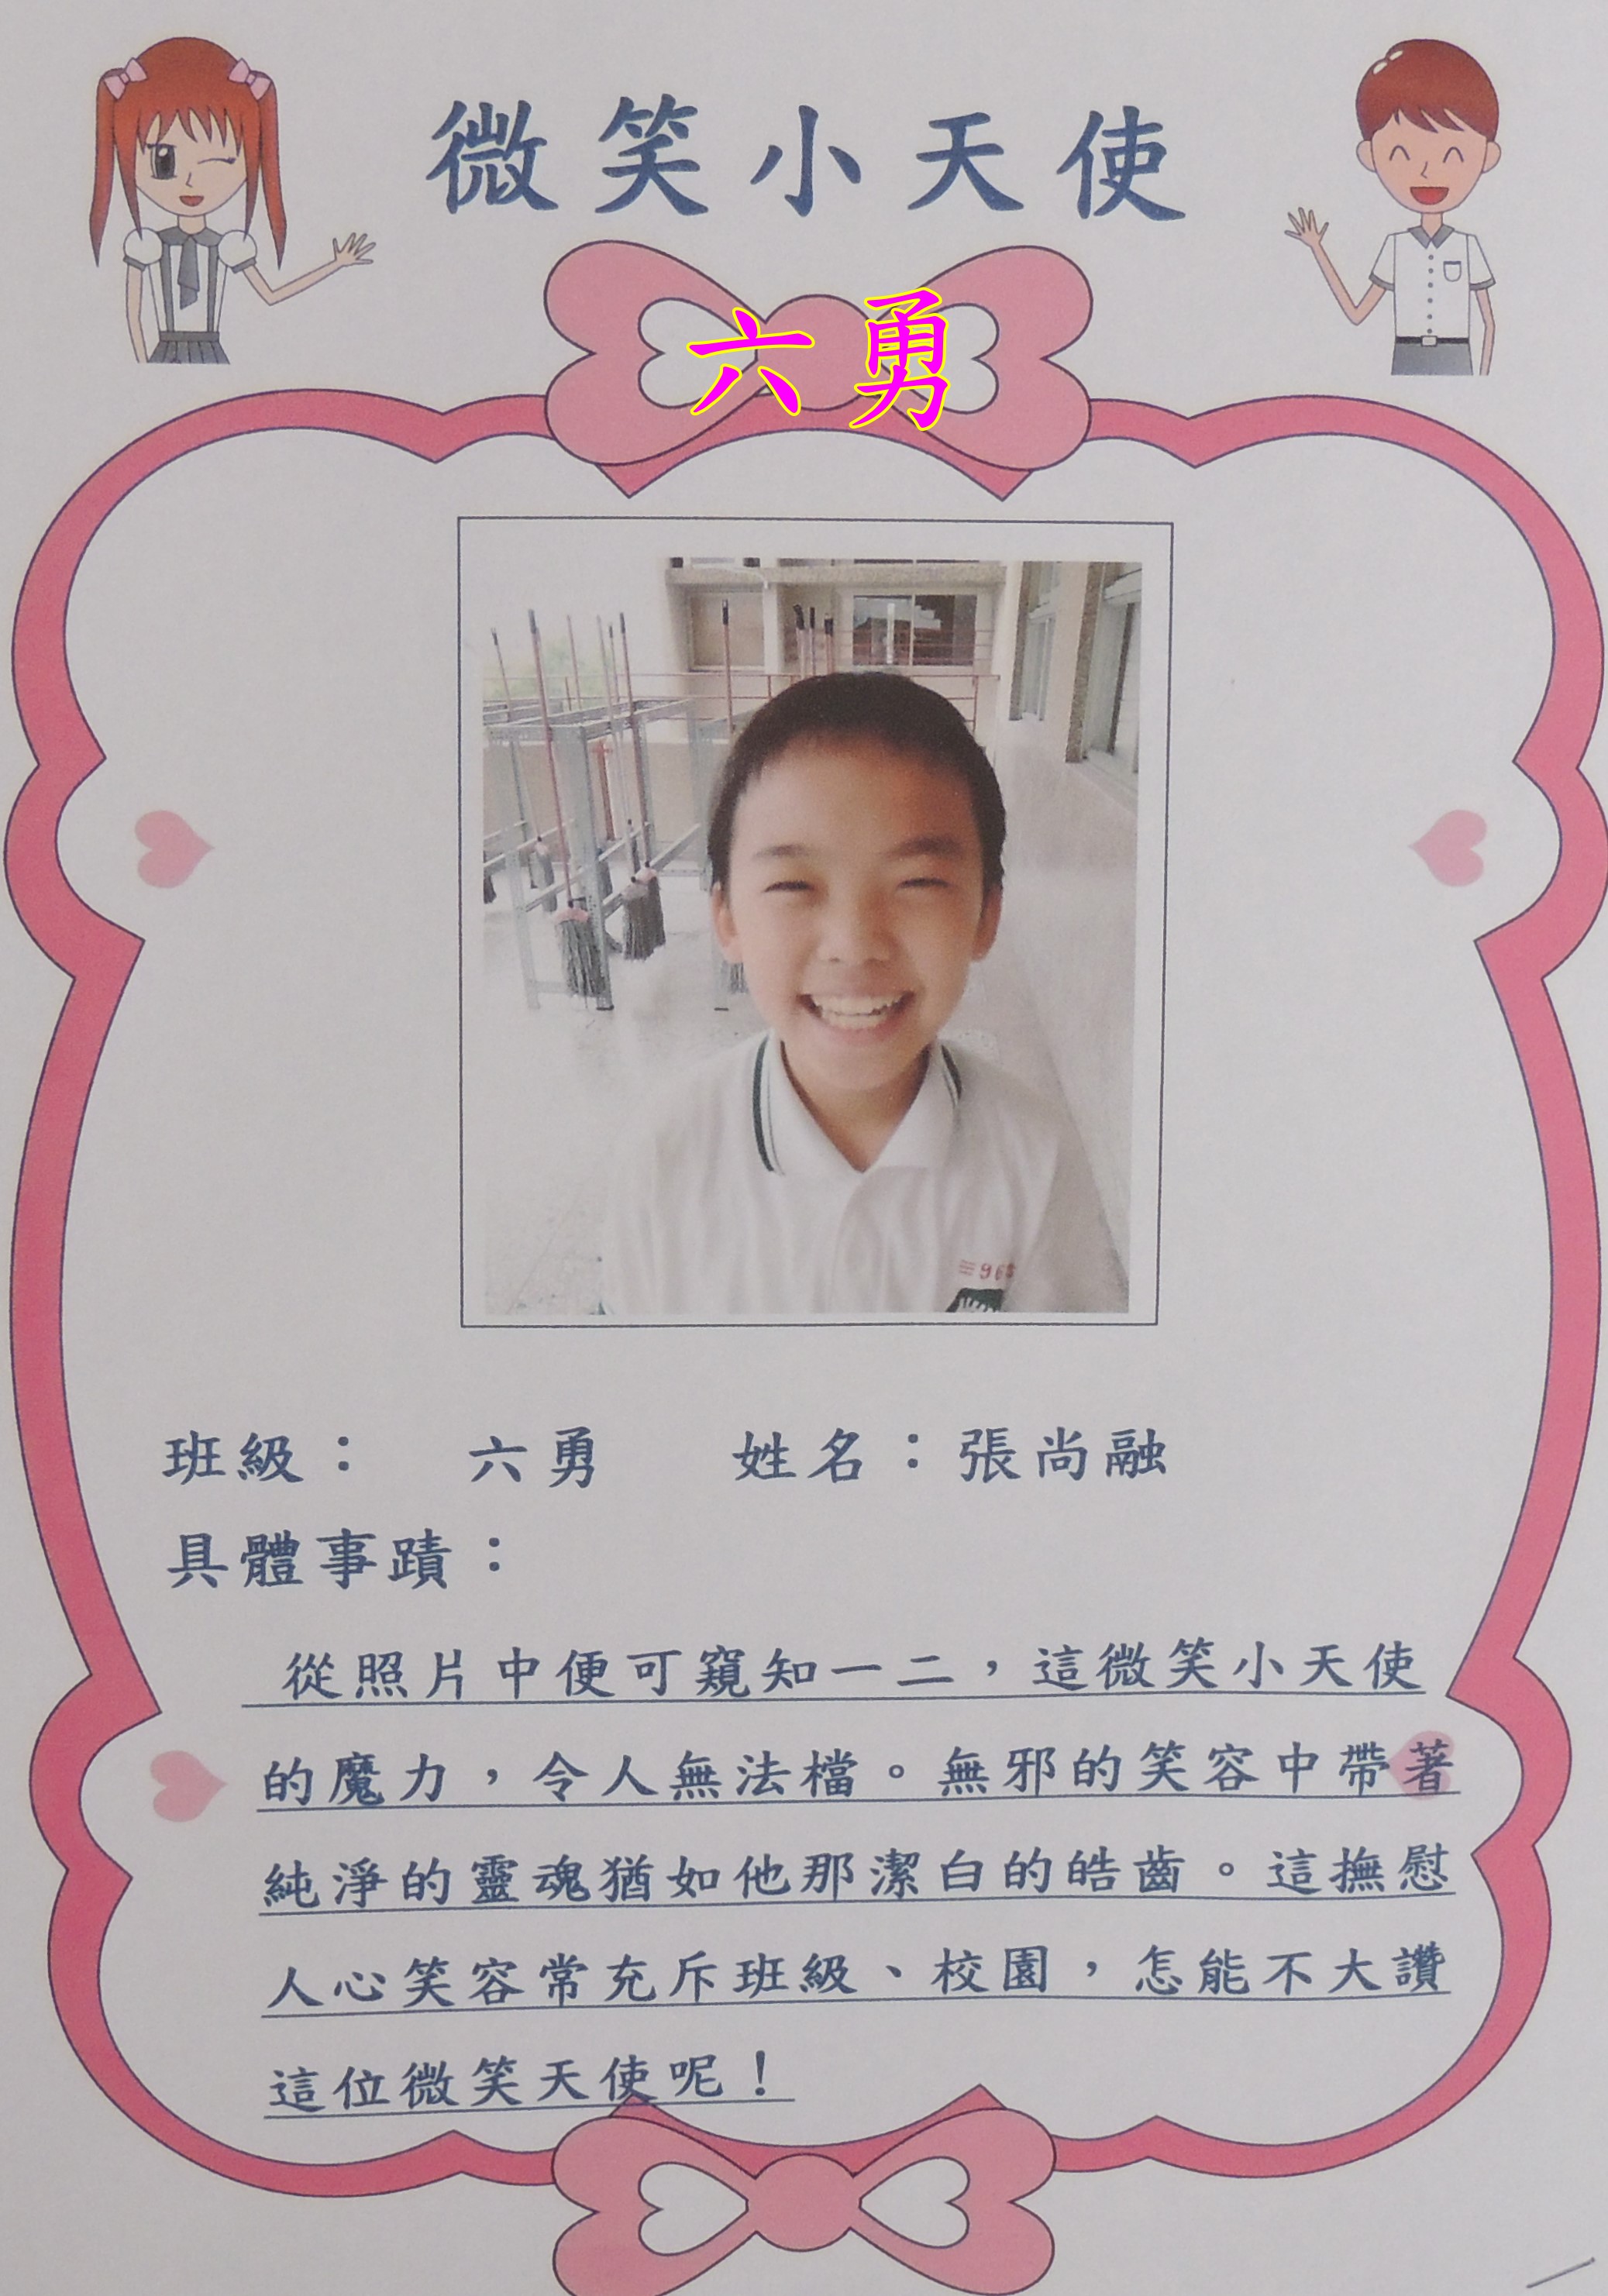 微笑小天使
六勇
三96
班級： 六勇 姓名：張尚融
具體事蹟：
從照片中便可窺知一二，這微笑小天使
的魔力，令人無法檔。無邪的笑容中帶著
純淨的靈魂猶如他那潔白的皓齒。這撫慰
人心笑容常充斥班級、校園，怎能不大讚
這位微笑天使呢！